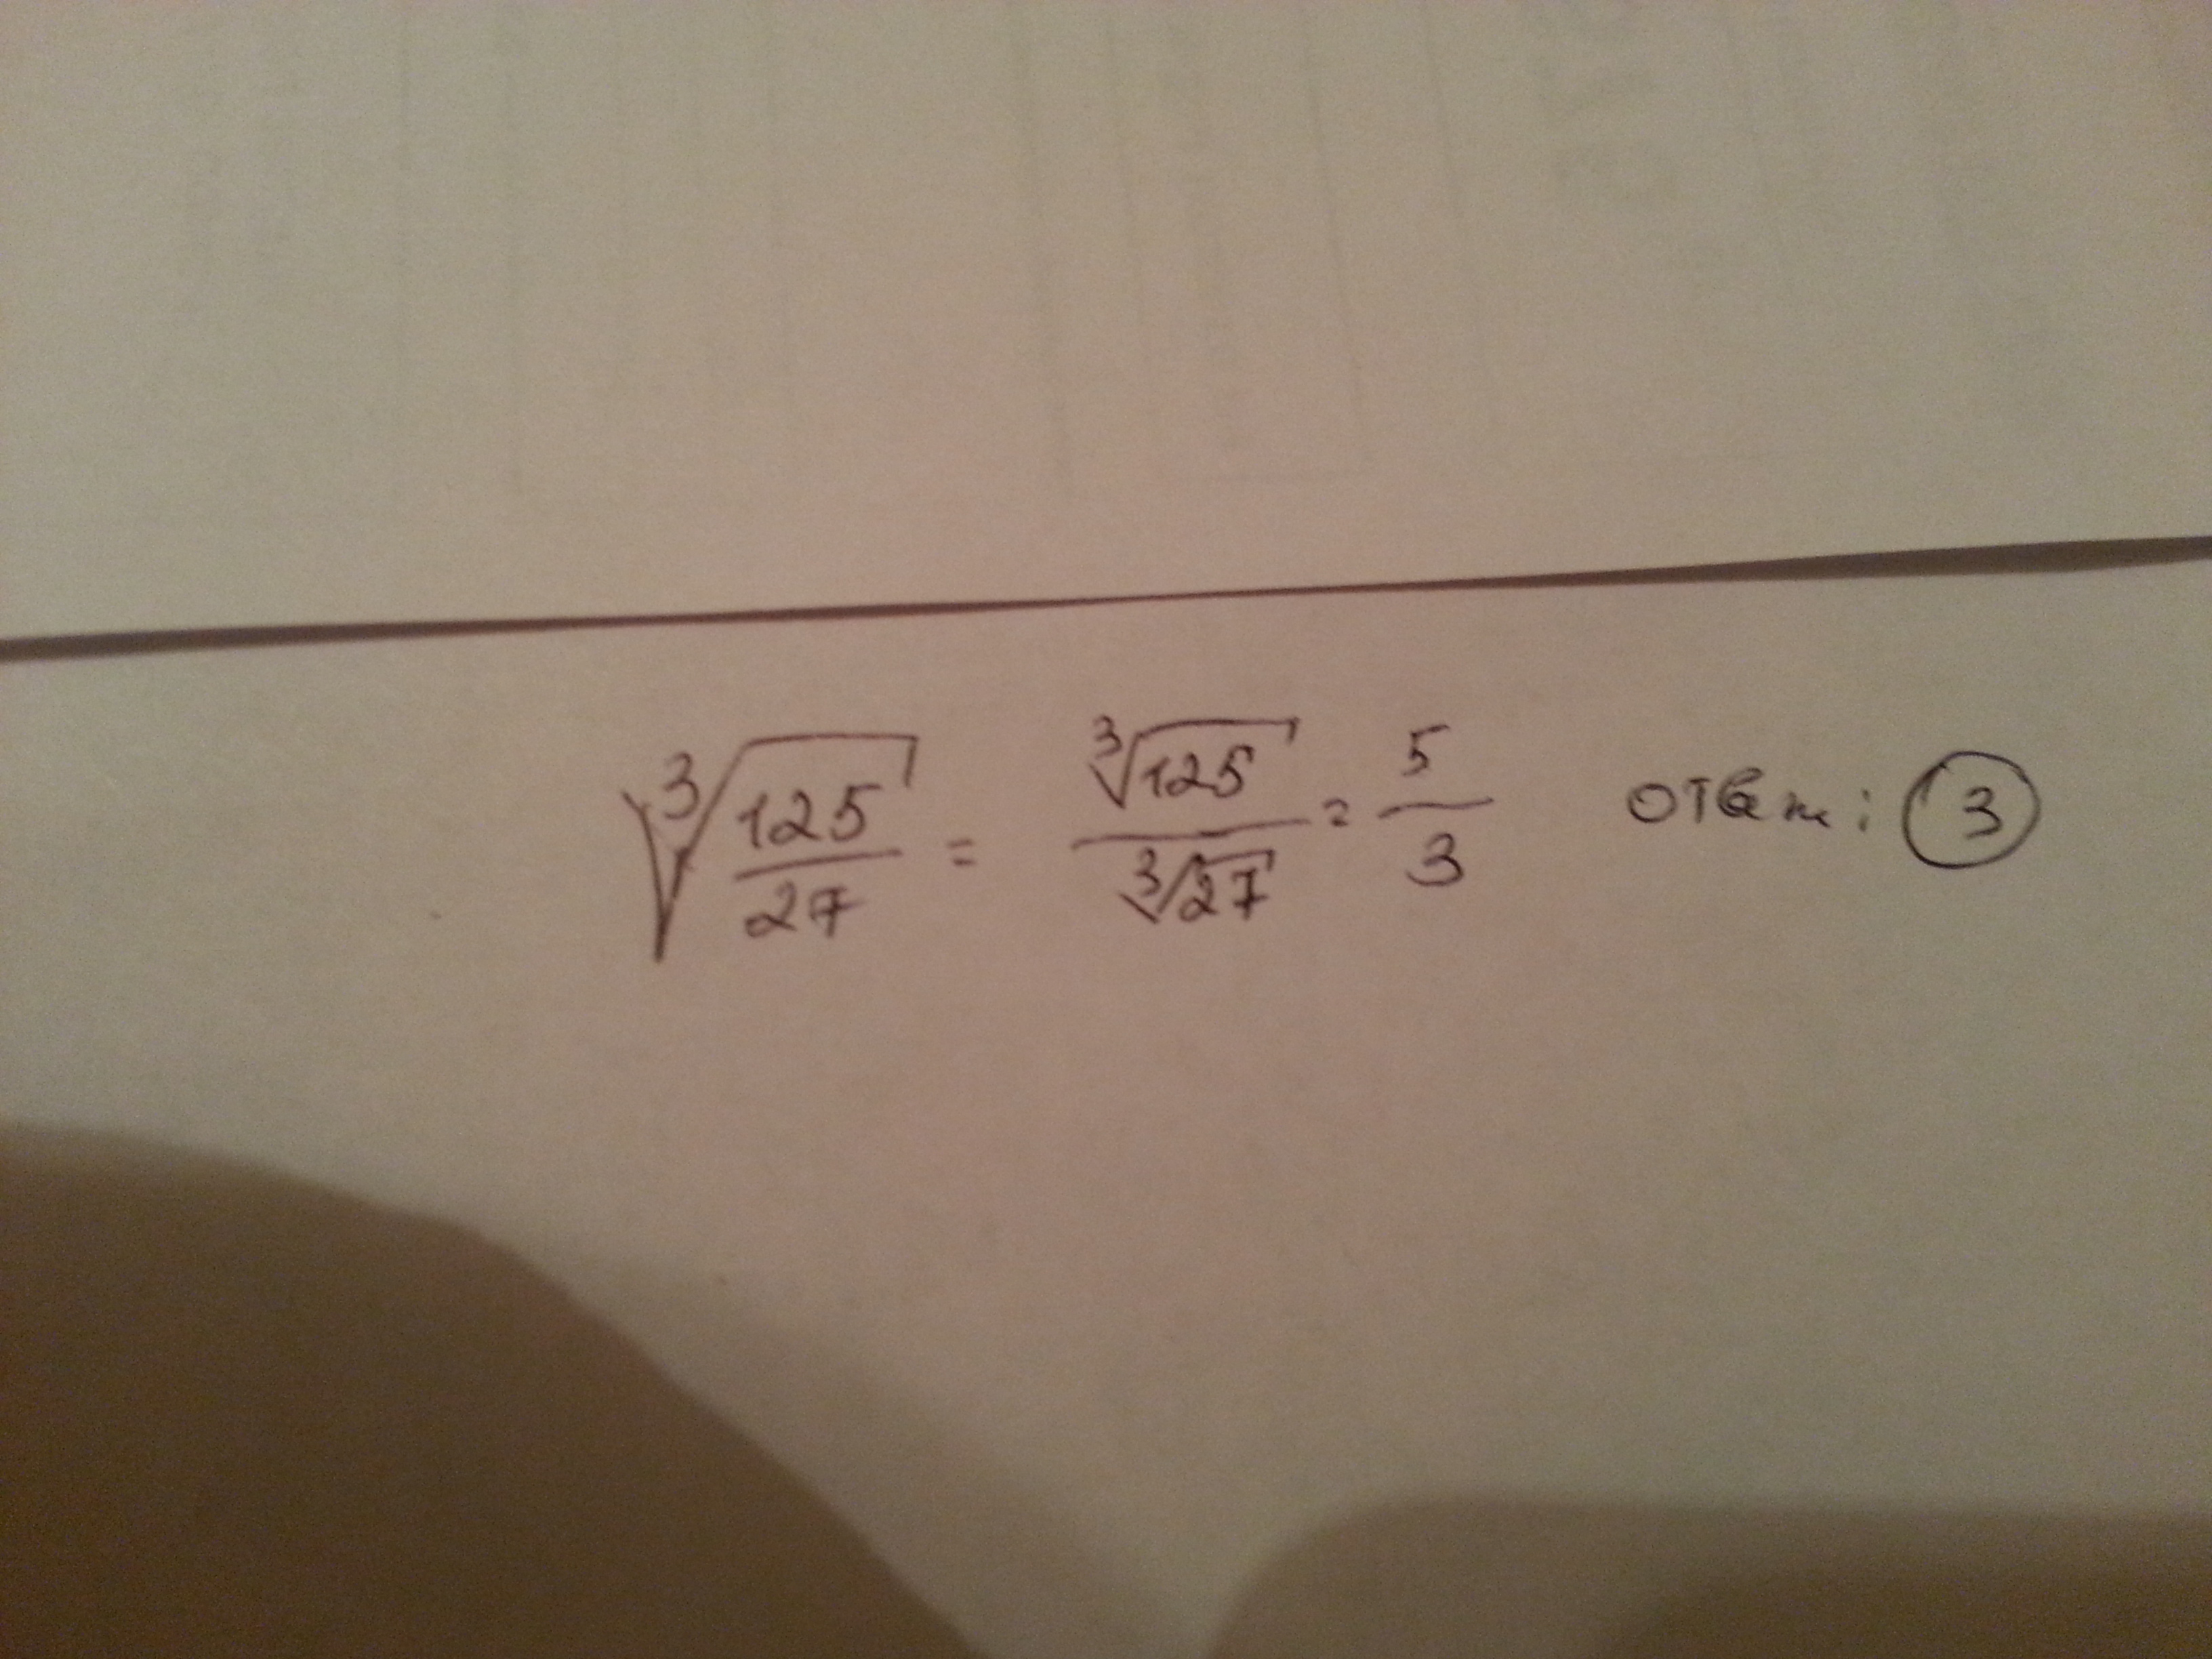 ∛(125/27) = ∛125/∛27 = 5/3 ответ: 3